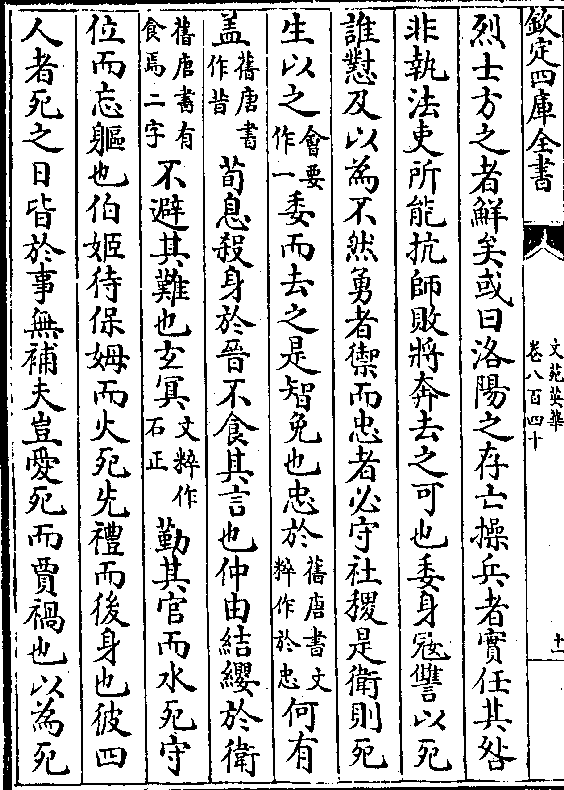 欽定四庫全書
文苑英華
卷八百四十
十一
烈士方之者鮮矣或曰洛陽之存亡操兵者實任其咎
非執法吏所能抗師敗將奔去之可也委身寇讐以死
誰懟及以為不然勇者禦而忠者必守社稷是衛則死
生以之會要作一委而去之是智免也忠於舊唐書文粹作於忠何有
盖舊唐書作昔荀息殺身於晉不食其言也仲由結纓於衛
舊唐書有食焉二字不避其難也玄冥文粹作石正勤其官而水死守
位而忘軀也伯姬待保姆而火死先禮而後身也彼四
人者死之日皆於事無補夫豈愛死而賈禍也以為死